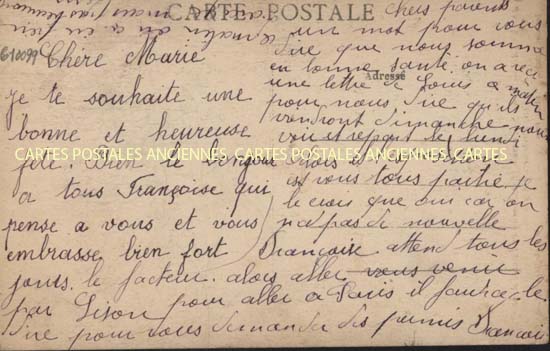 CARTE POSTALE
Adresse
Chère Marie
je te souhaite une
bonne et heureuse
fête. Bien le bonjour
a tous Françoise qui
pense a vous et vous
embrasse bien fort
chers parents
un mot pour vous
dire que nous somme
en bonne santé. on a reçu
une lettre de Louis a matin
pour nous dire qu'ils
viendront dimanche nous
voir et repart le lundi
vous tous partie je
le crois que oui car on
n'a pas de nouvelle
Françoise attend tous les
jours le facteur. alors aller vous venir
par Lison pour aller a Paris il faudra le
dire pour vous demander des permis Francois
CARTES POSTALES ANCIENNES. CARTES POSTALES ANCIENNES. CARTES